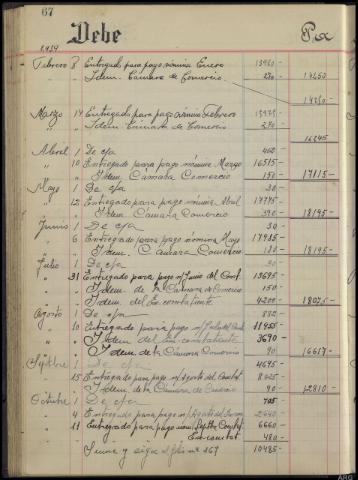 67
Debe
1939
Febrero 8 Entregado para pago nómina Enero 13980 -
" " Idem. Cámara de Comercio 270 - 14250
14250 -
Marzo 14 Entregado para pago nómina Febrero
" " Idem Cámara de Comercio 270 -
16245
Abril 1 De cja 462 -
" 10 Entregado para pago nómina Marzo 16515 -
" " Idem. Cámara Comercio 150 - 17115 -
Mayo 1 De cja 30 -
" 12 Entregado para pago nómina Abril 17775 -
Idem Cámara Comercio 390 - 18195 -
Junio 1 De cja 30 -
" 6 Entregado para pago nómina Mayo 17985 -
" Idem. Cámara Comercio 180 - 18195 -
Julio 1 De cja 30 -
" 31 Entregado para pago n/ Junio del Comb. 13695 -
" Idem de la Cámara de Comercio 150 -
" Idem del Excombatiente 4200 - 18075 -
Agosto 1 De cja 882 -
" 10 Entregado para pago n/ Julio del Comb. 11955 -
" Idem del Ex-combatiente 3690 -
" Idem de la Cámara Comercio 90 - 16617 -
Septbre 1 De cja 4695 -
" 15 Entregado para pago n/ Agosto del Combat 8025 -
" Idem de la Cámara de Comercio 90 - 12810 -
Octubre 1 De cja 705 -
" 4 Entregado para pago n/ Agosto del 2640 -
" 11 Entregado para pago nómi Septbre Combt 6660 -
" Excombat 480 -
Suma y sigue al folio nº 169 10485 -